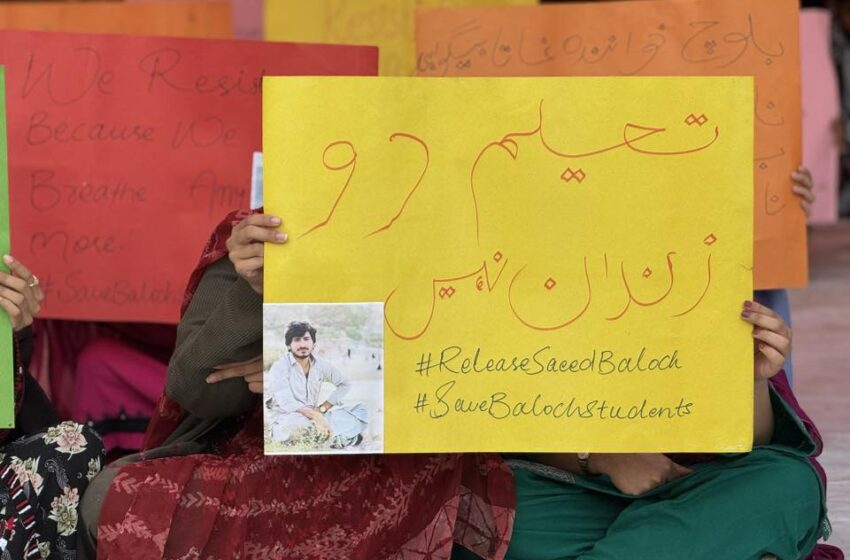 We Resis
Because We
Breathe Any
More.
#SaveBaloch
بلوچ
تعلیم دو
زندان نہیں
#ReleaseSaeedBaloch
#SaveBalochstudents